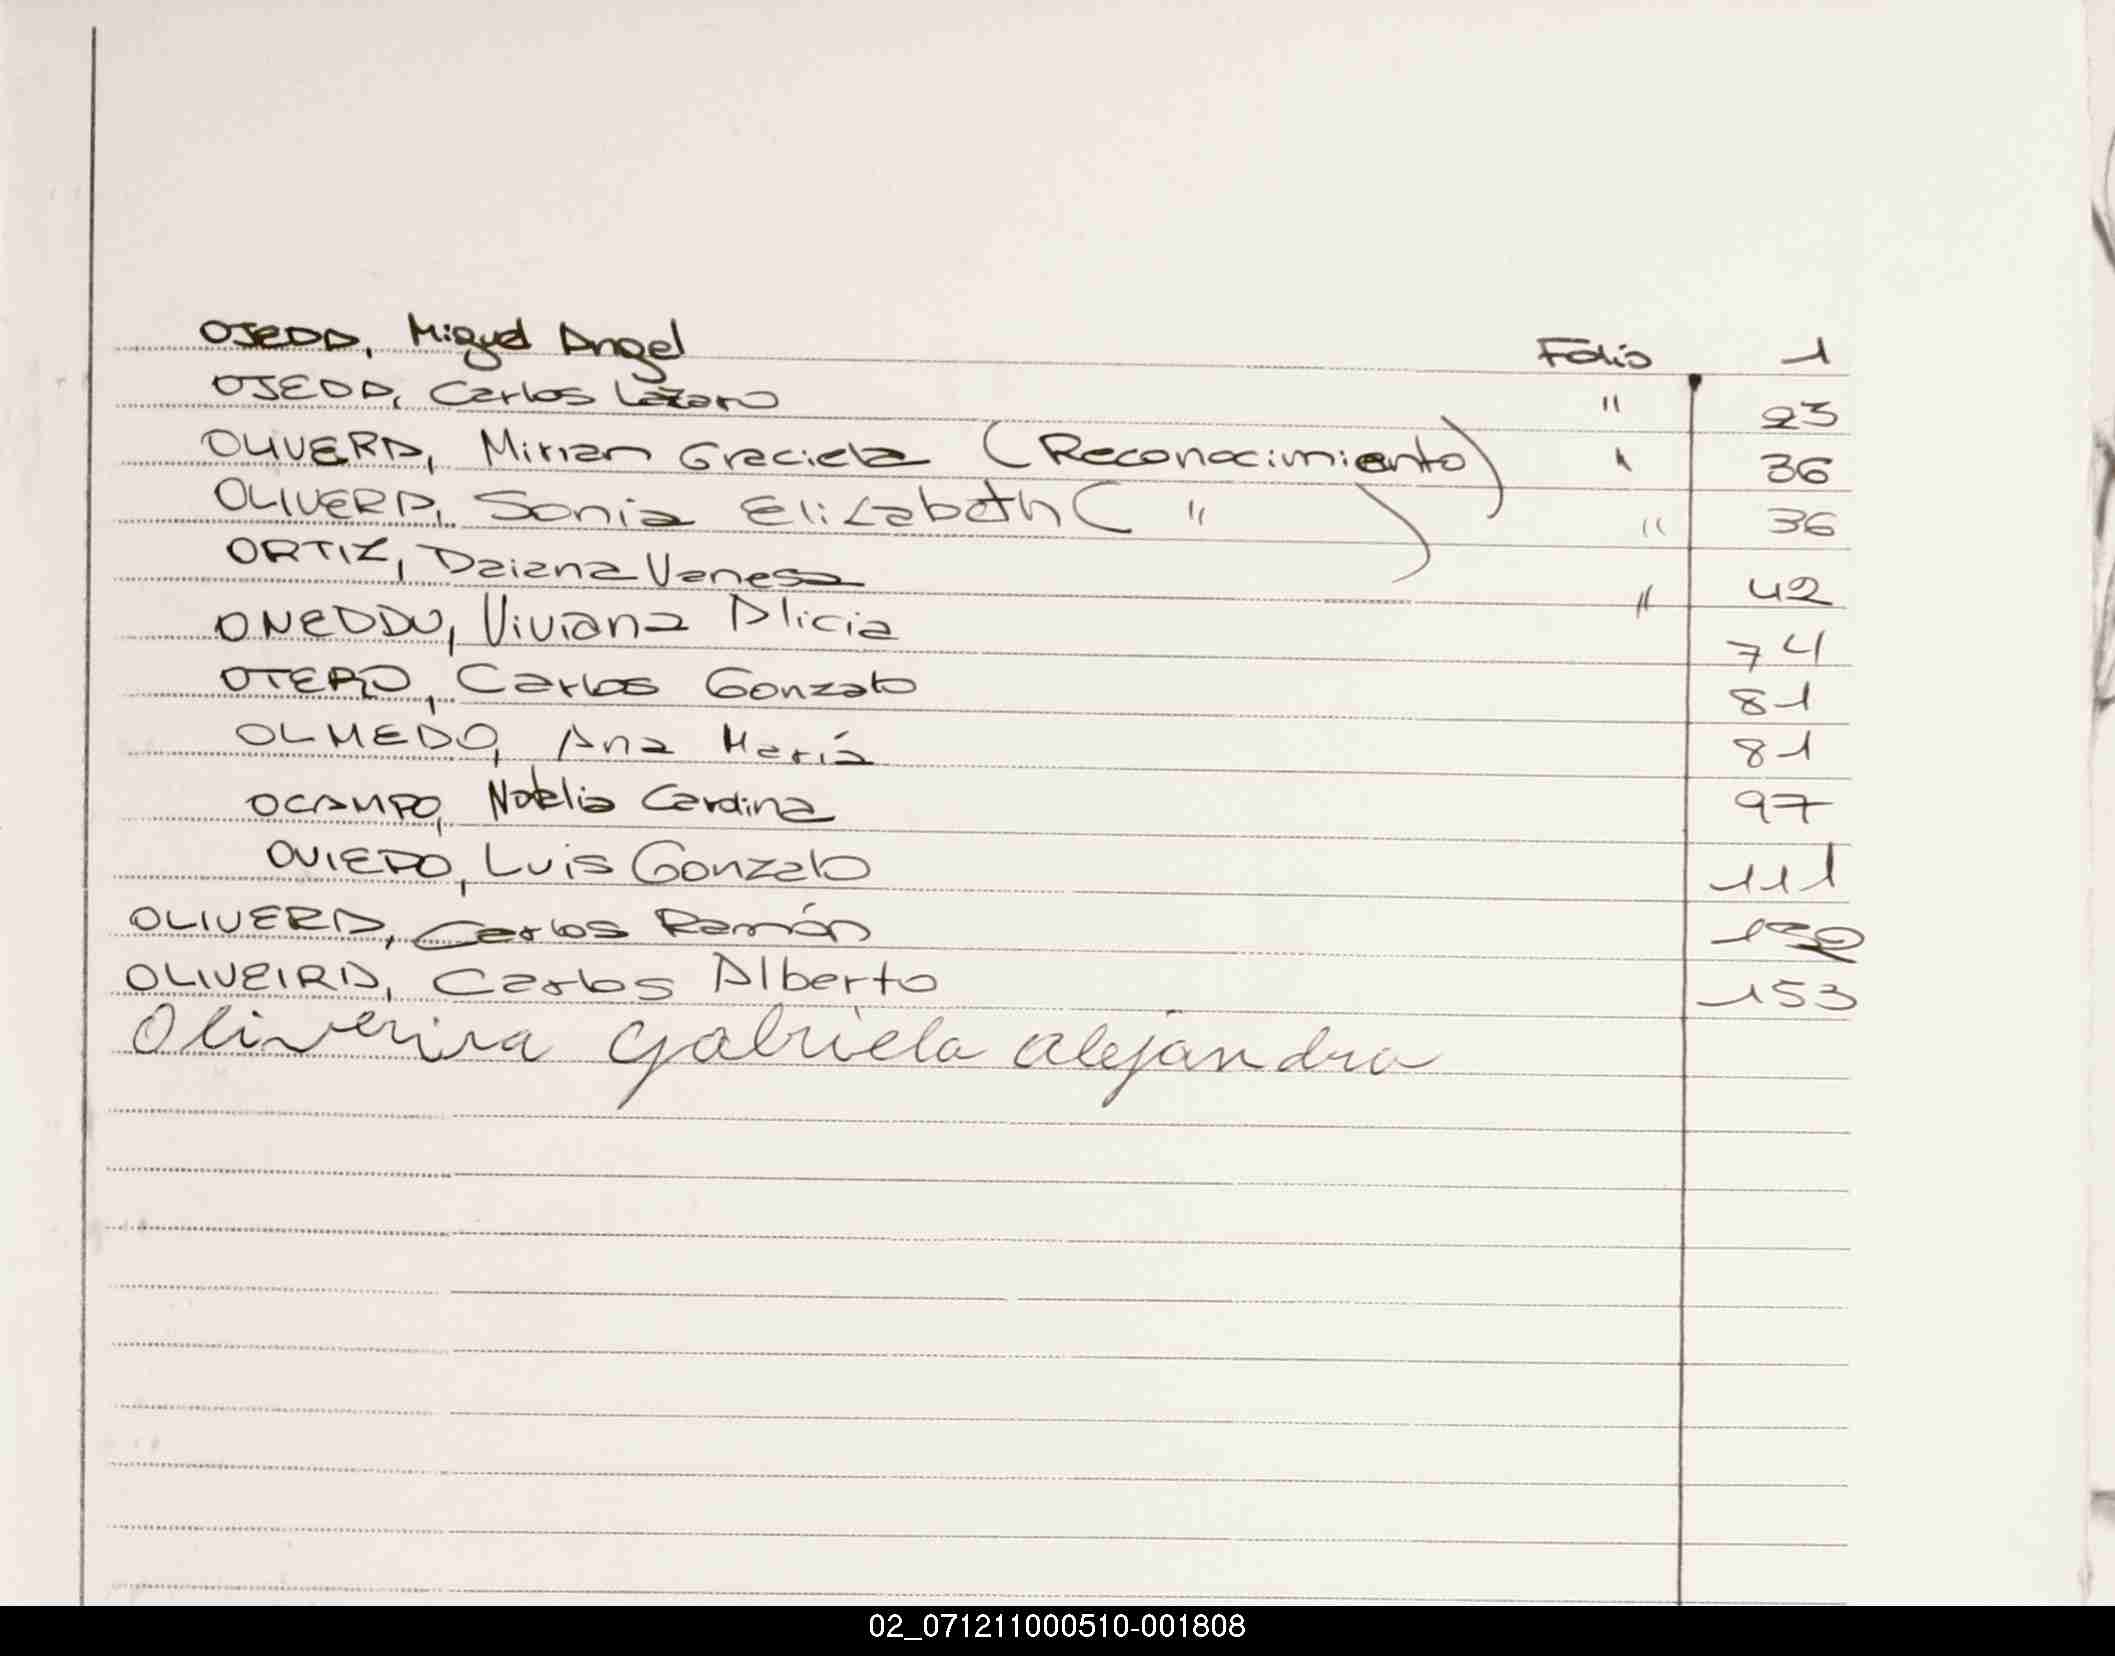 OJEDA, Miguel Angel Folio 1
OJEDA, Carlos Lázaro " 23
OLIVERA, Mirian Graciela (Reconocimiento) " 36
OLIVERA, Sonia Elizabeth ( " ) " 36
ORTIZ, Daiana Vanesa " 42
ONEDDU, Viviana Alicia 74
OTERO, Carlos Gonzalo 81
OLMEDO, Ana María 81
OCAMPO, Natalia Carolina 97
OVIEDO, Luis Gonzalo 111
OLIVERA, Carlos Ramón
OLIVEIRA, Carlos Alberto 153
Oliverira Gabriela Alejandra
02_071211000510-001808